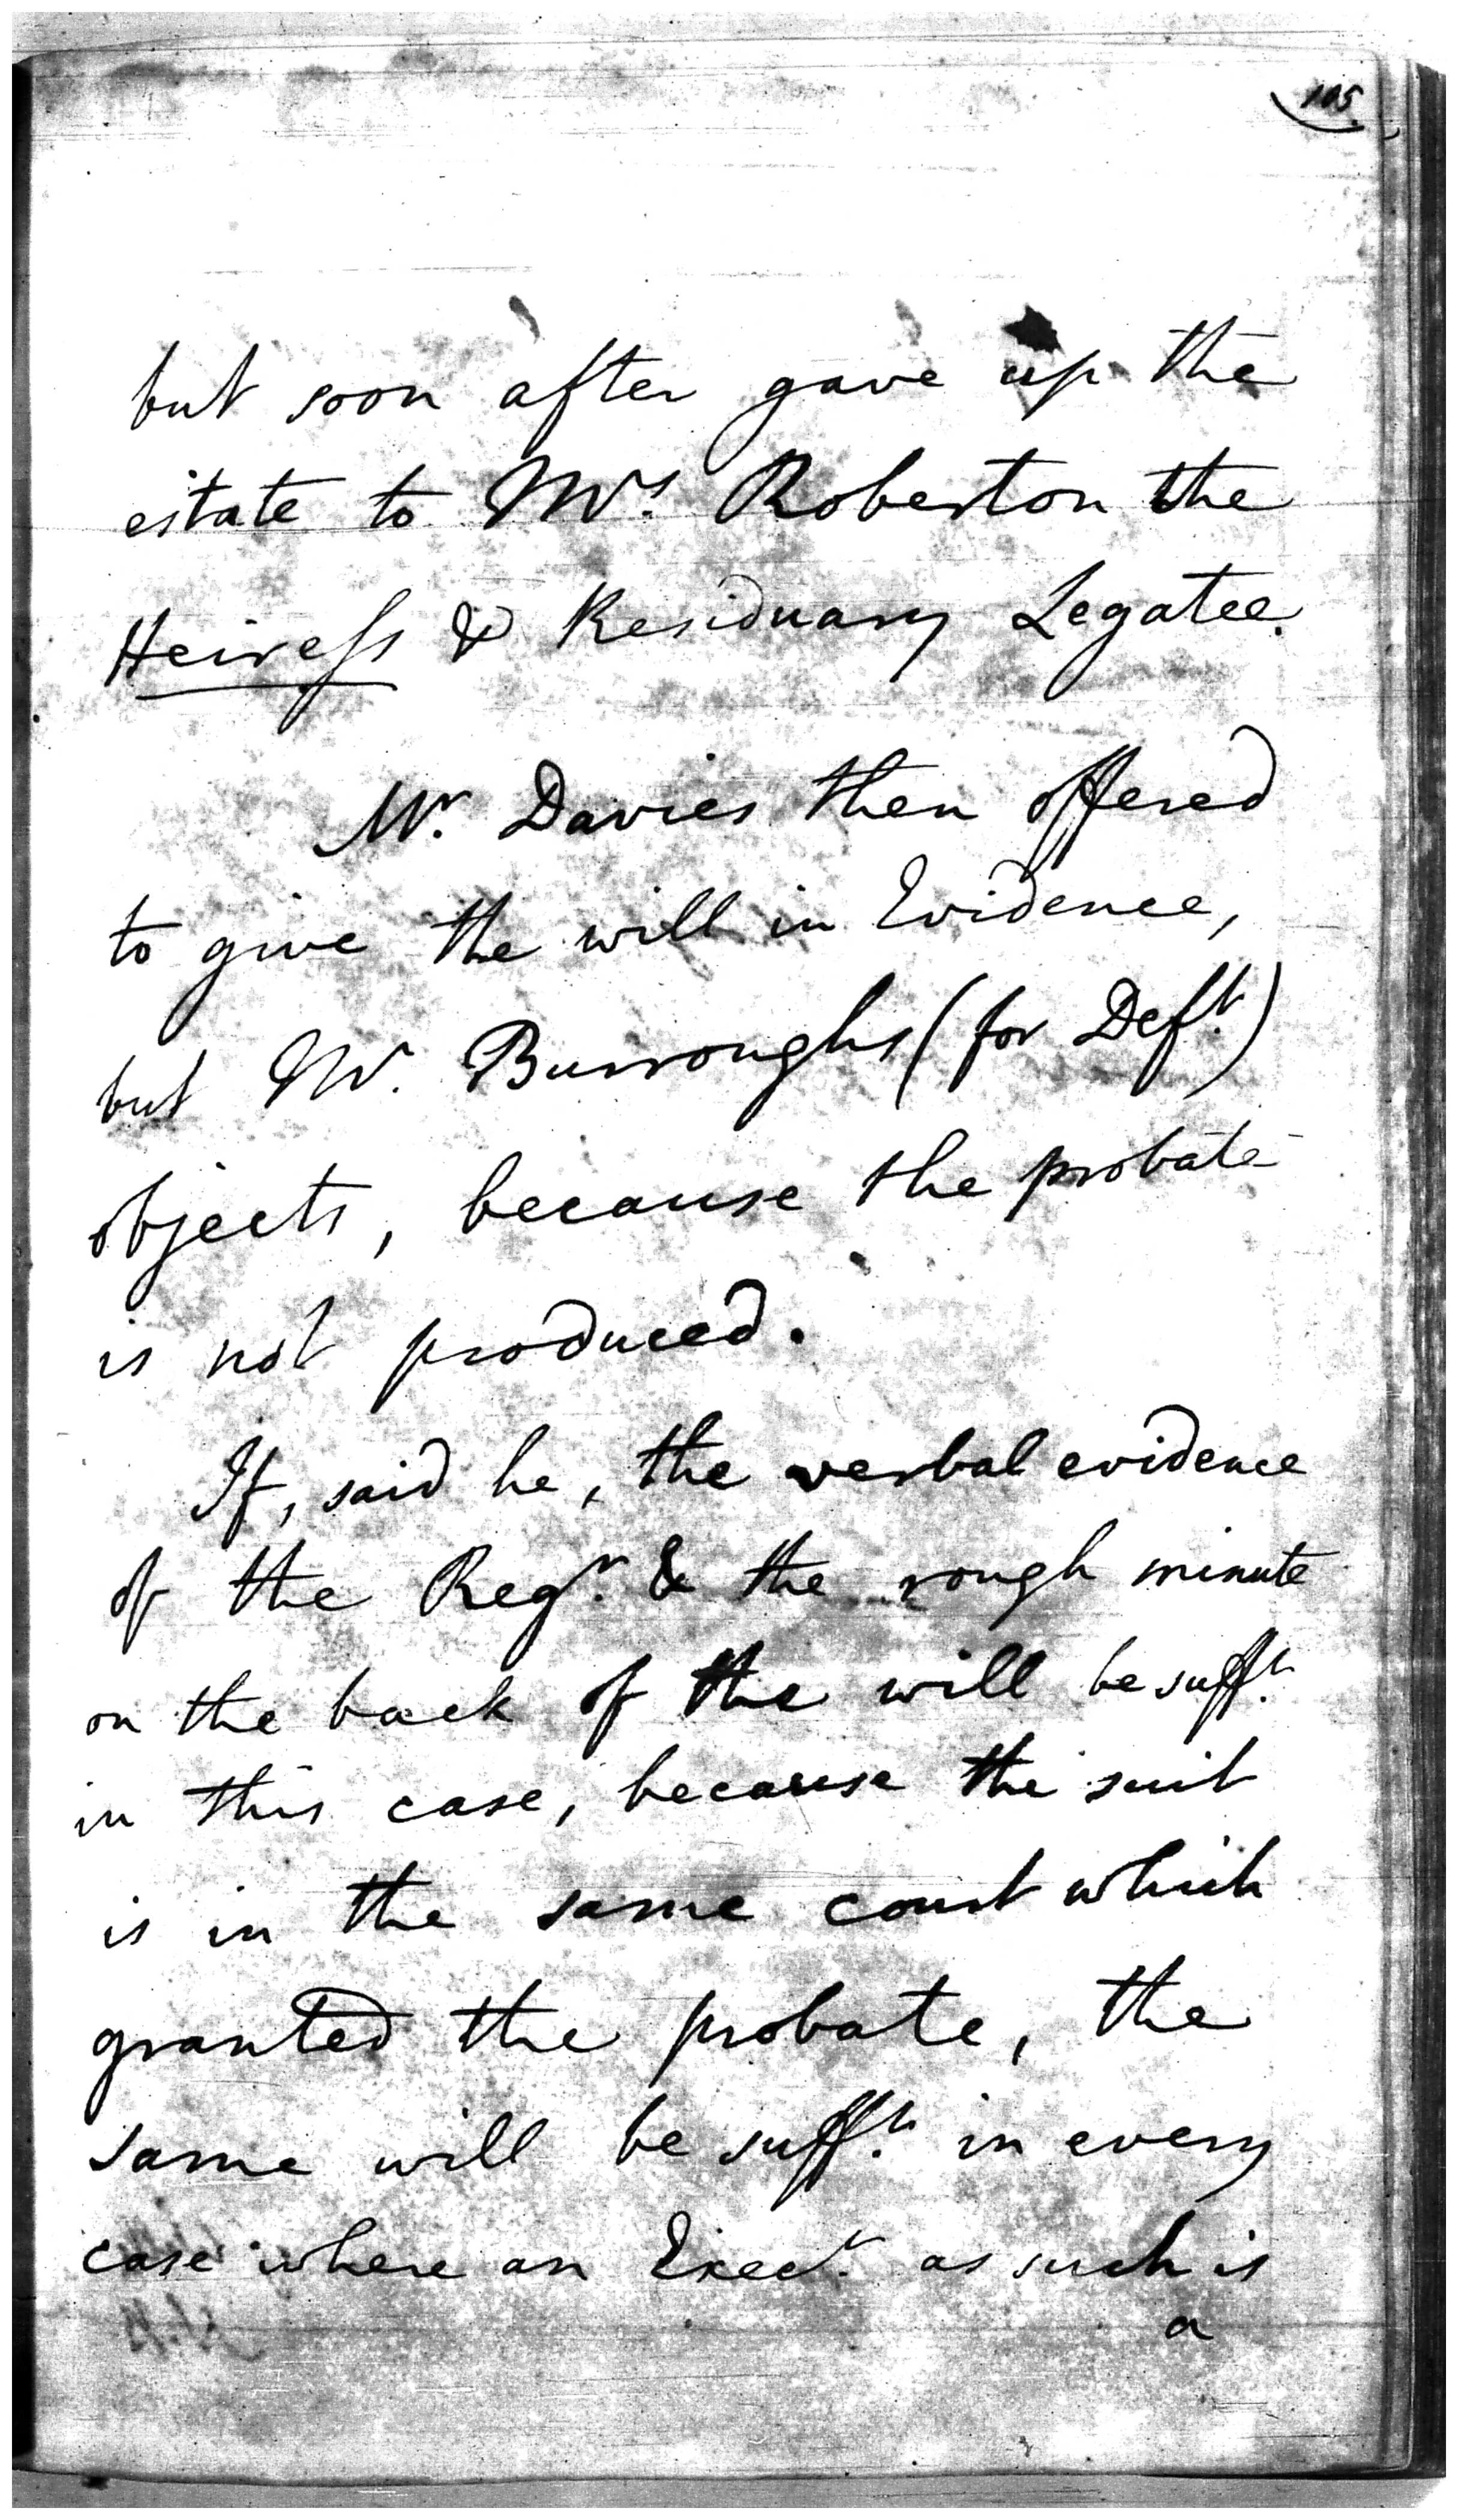 105
but soon after gave up the
estate to Mrs. Roberton the
Heiress & Residuary Legatee.
Mr. Davies then offered
to give the will in Evidence,
but Mr. Burroughs (for Deft.)
objects, because the probate
is not produced.
If, said he, the verbal evidence
of the Regr. & the rough minute
on the back of the will be sufft.
in this case, because the suit
is in the same court which
granted the probate, the
same will be sufft. in every
case where an Execr. as such is
a